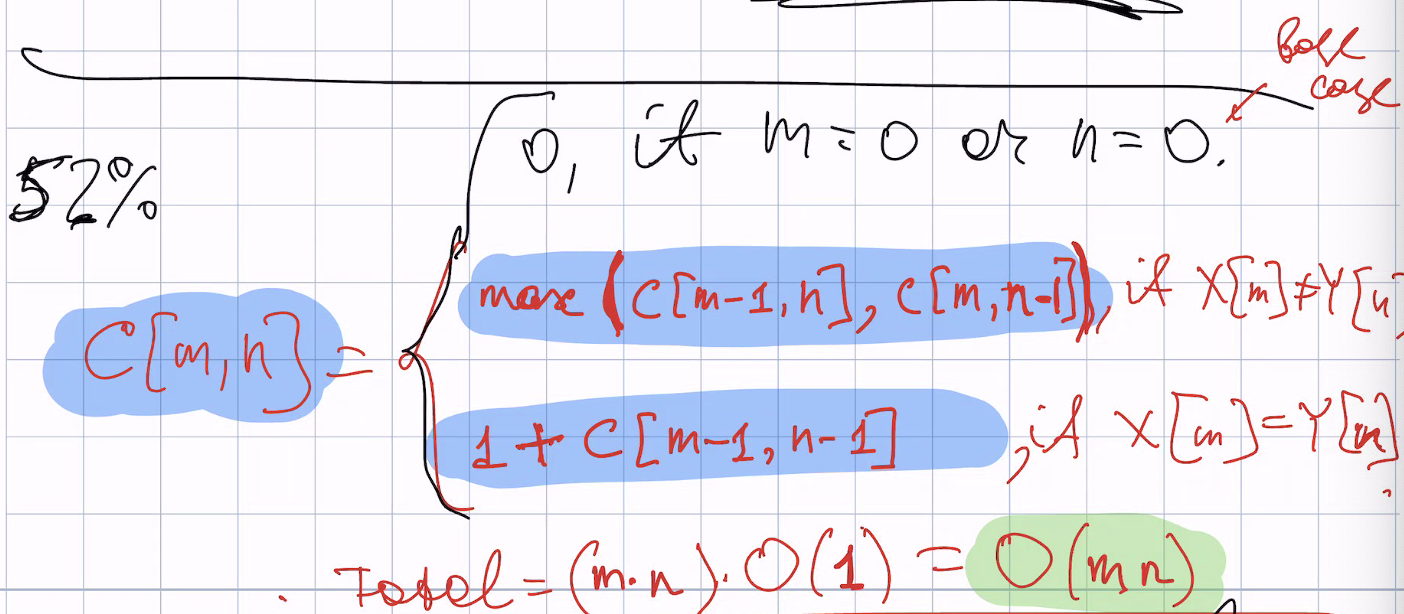 Base
case
0, if m=0 or n=0.
52%
max (C[m-1,n], C[m,n-1]), if X[m]≠Y[n
C[m,n] =
1 + C[m-1,n-1] , if X[m]=Y[n]
Total = (m·n)·O(1) = O(mn)